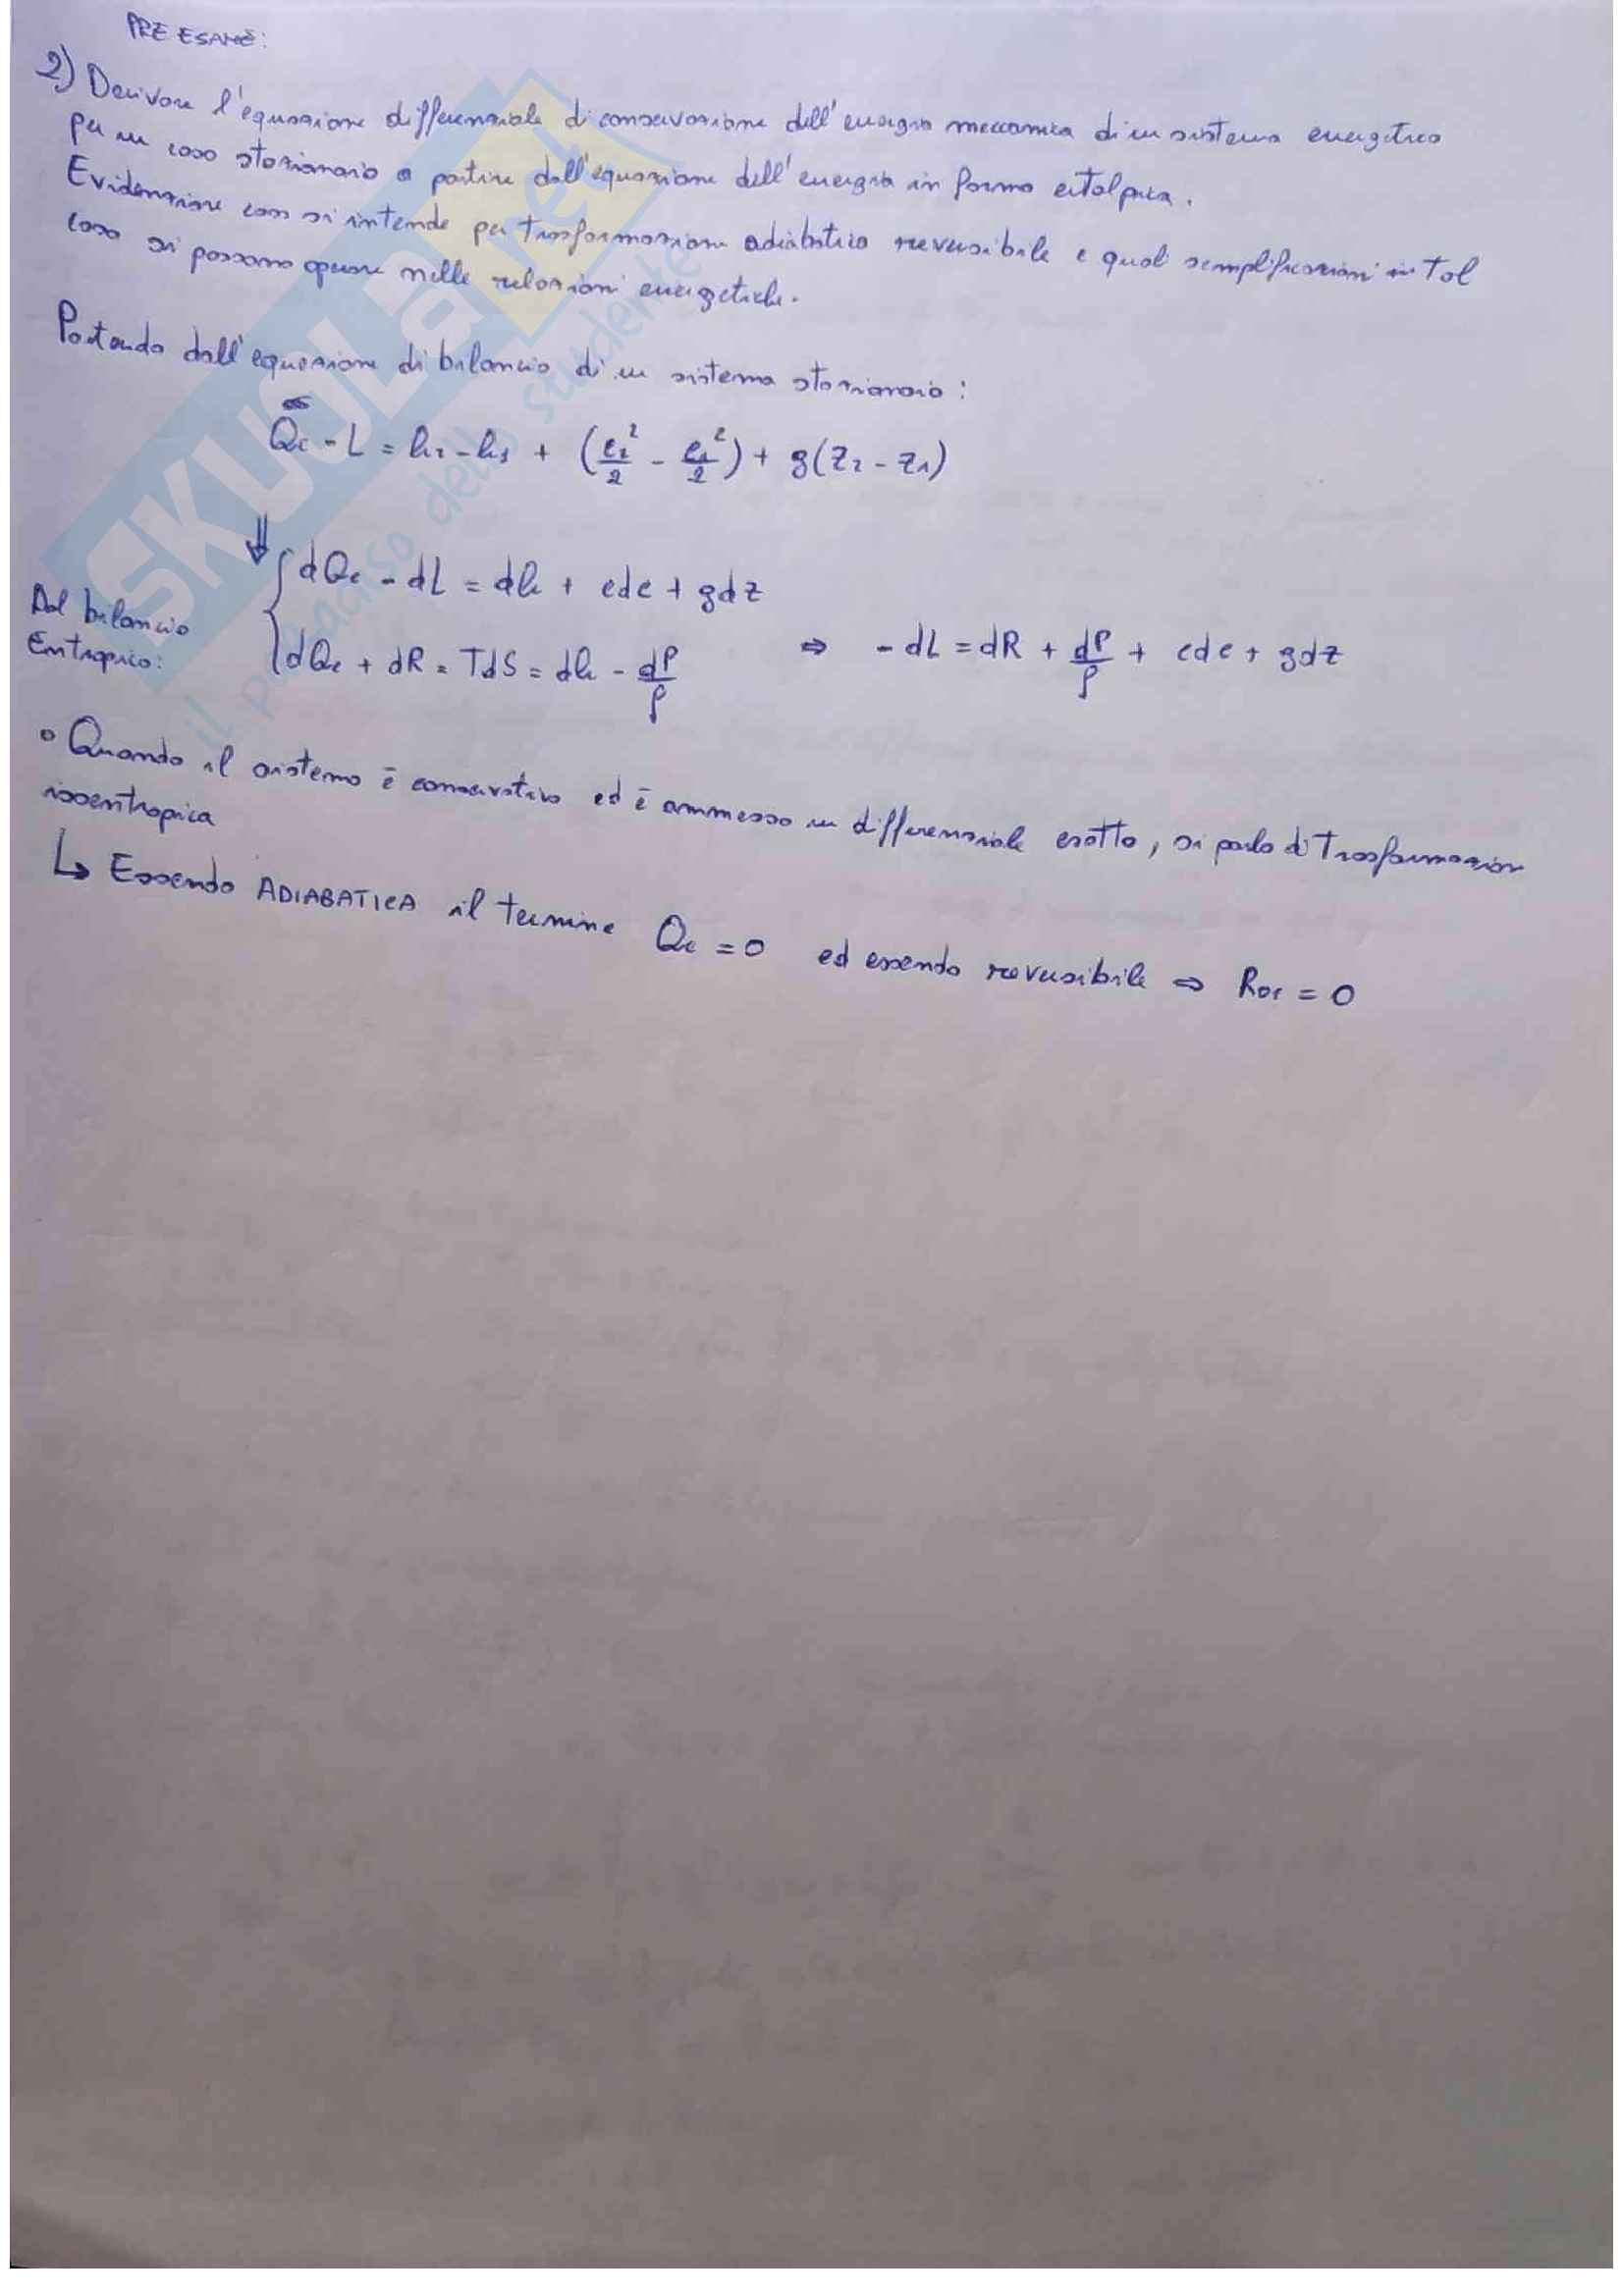 PRE ESAME:
2) Derivare l'equazione differenziale di conservazione dell'energia meccanica di un sistema energetico
per un caso stazionario a partire dall'equazione dell'energia in forma entalpica.
Evidenziare cosa si intende per trasformazione adiabatica reversibile e quali semplificazioni in tal
caso si possono operare nelle relazioni energetiche.
Partendo dall'equazione di bilancio di un sistema stazionario:
Qe - L = h2 - h1 + (c2²/2 - c1²/2) + g(z2 - z1)
⇓
dQe - dL = dh + cdc + gdz
Dal bilancio
Entropico:
dQe + dR = TdS = dh - dP/ρ ⇒ - dL = dR + dP/ρ + cdc + gdz
• Quando il sistema è conservativo ed è ammesso un differenziale esatto, si parla di Trasformazion
isoentropica
↳ Essendo ADIABATICA il termine Qe = 0 ed essendo reversibile ⇒ = 0
SKUOLA.net
il paradiso dello studente